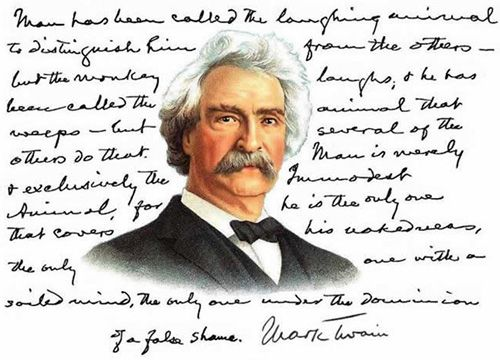 Man has been called the laughing animal
to distinguish him from the others —
but the monkey laughs, & he has
been called the animal that
weeps — but several of the
others do that. Man is merely
& exclusively the Immodest
Animal, for he is the only one
that covers his nakedness,
the only one with a
soiled mind, the only one under the dominion
of a false shame. Mark Twain